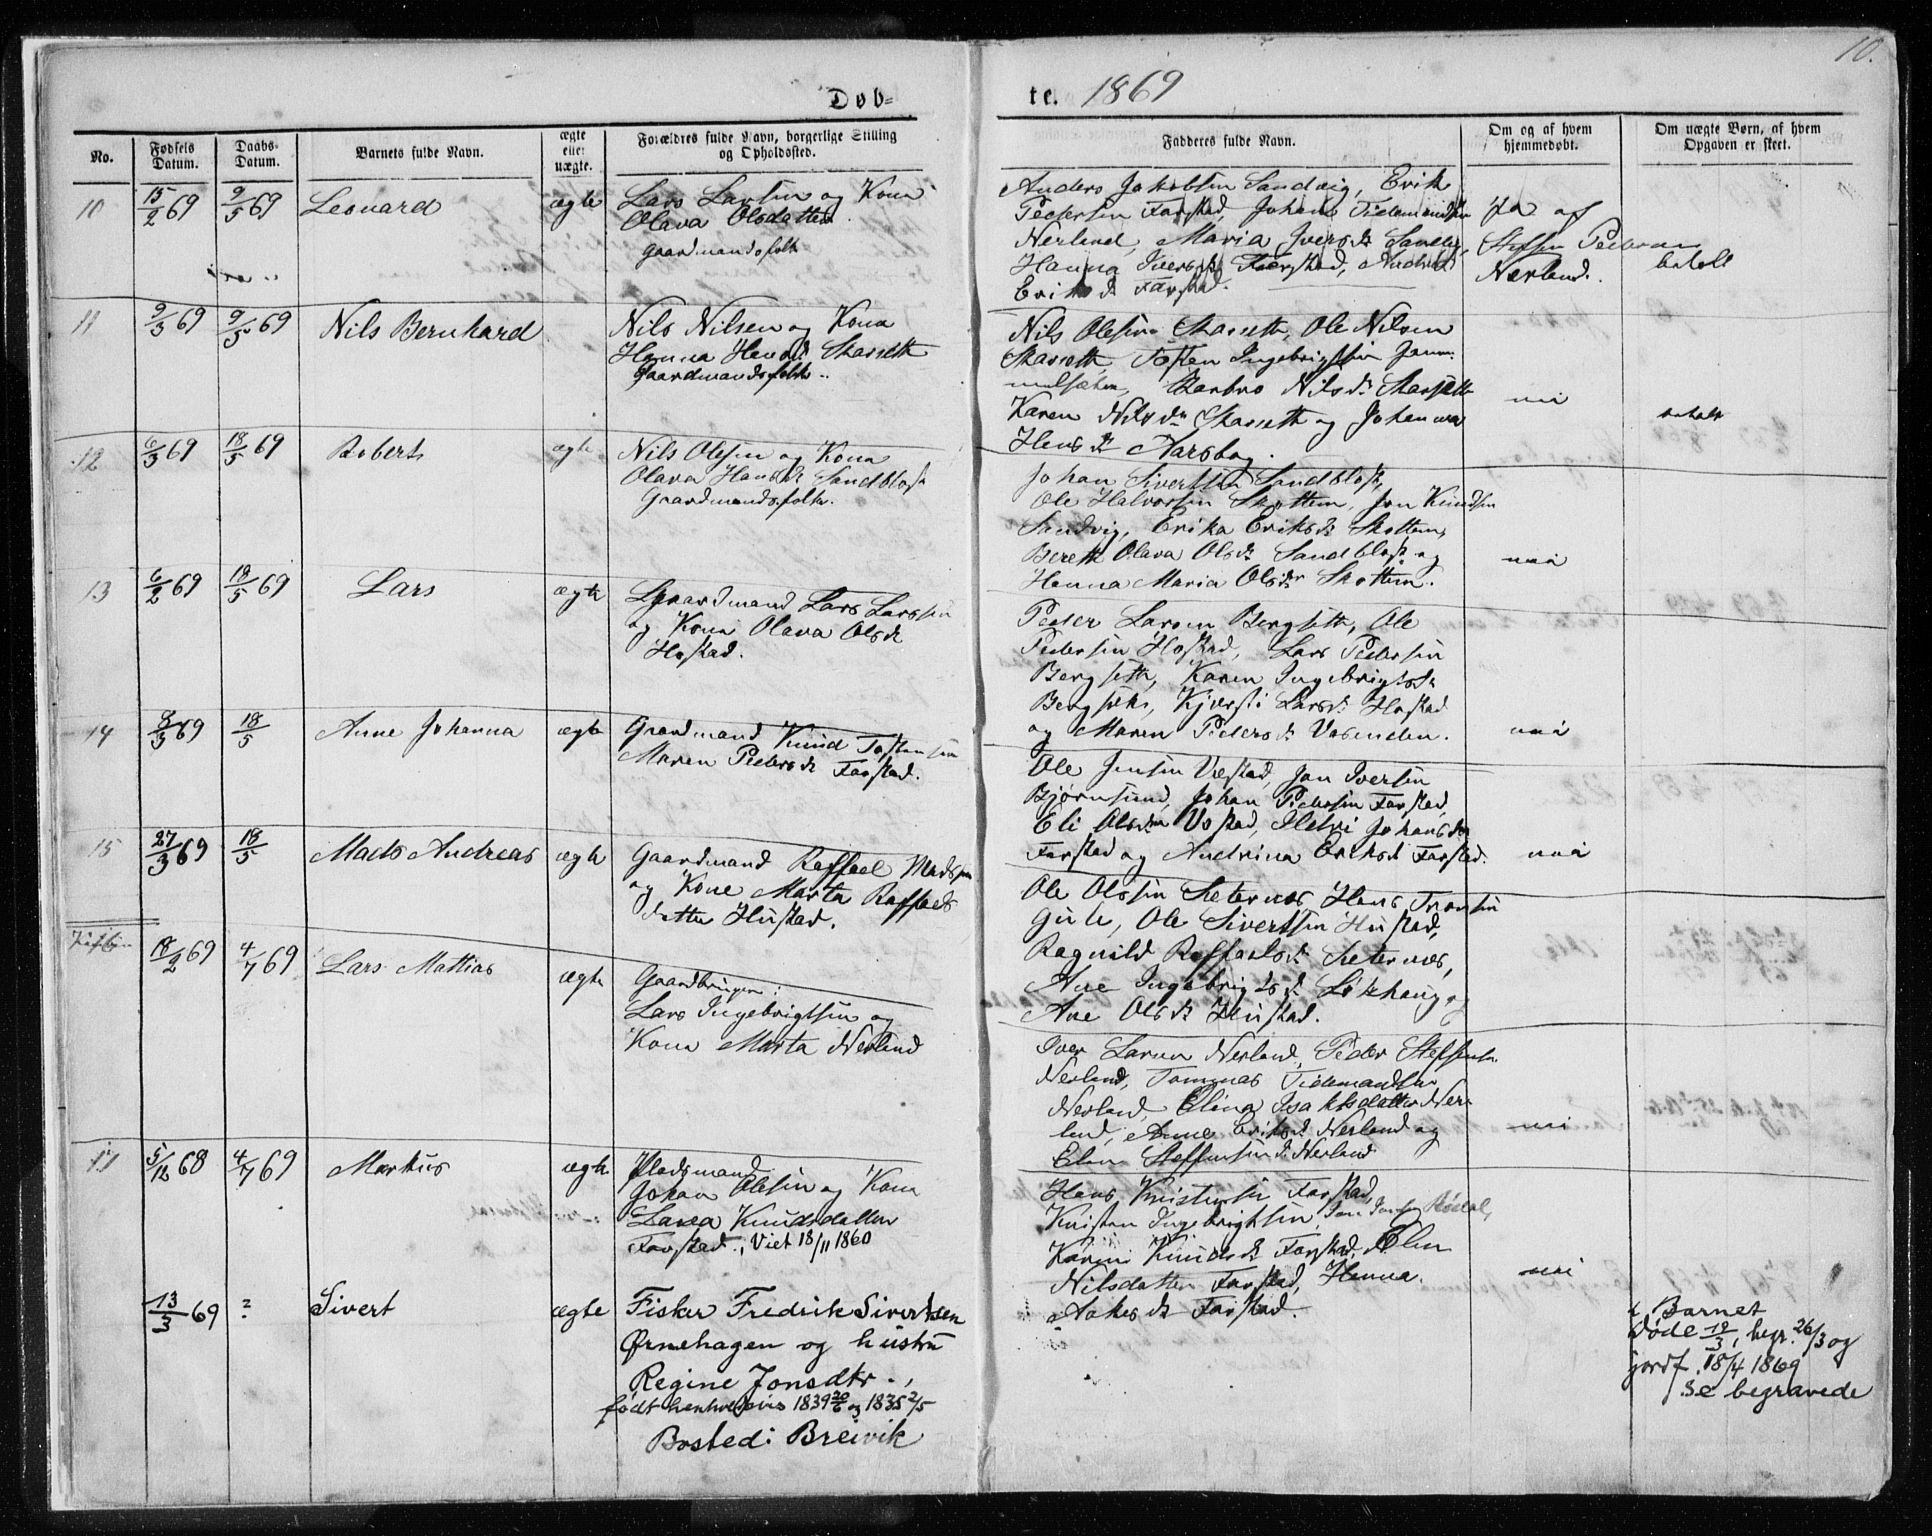 10.
Døb-
te. 1869
No.
Fødsels Datum.
Daabs-Datum.
Barnets fulde Navn.
ægte eller uægte.
Forældres fulde Navn, borgerlige Stilling og Opholdssted.
Fadderes fulde Navn.
Om og af hvem hjemmedøbt.
Om uægte Børn, af hvem Opgaven er skeet.
10 15/2 69 9/5 69 Leonard ægte
Lars Larsen og Kona
Olava Olsdatter
Gaardmandsfolk
Anders Jakobsen Sandvig, Erik
Pedersen Farstad, Johan Tidemandsen
Nerland, Maria Ivers dr
Hanna Ivers dr Farstad,
Eriks dr Farstad.
Ja af
Steffen Pedersen
Nerland.
betalt
11 9/3 69 9/5 69 Nils Bernhard
Nils Nilsen og Kona
Hanna Hans dr Skarseth
Gaardmandsfolk
Nils Olesen Skarseth, Ole Nilsen
Skarseth Tosten Ingebrigtsen
Barbro Nils dr Skarseth
Karen Nils dr Skarseth og Johanna
Hans dr Aarsbog.
nei
betalt
12 6/3 69 18/5 69 Robert ægte
Nils Olesen og Kona
Olava Hans dr Sandblost
Gaardmandsfolk.
Johan Sivertsen Sandblost,
Ole Halvorsen Skottem, Jon Knudsen
Sandvig, Erika Eriks dr Skottem,
Bereth Olava Ols dr Sandblost og
Hanna Maria Ols dr Skottem.
nei
13 6/2 69 18/5 69 Lars ægte
Gaardmand Lars Larssen
og Kona Olava Ols dr
Hostad.
Peder Larsen Bergseth, Ole
Pedersen Hostad, Lars Pedersen
Bergseth, Karen Ingebrigts dr
Bergseth, Kjersti Lars dr Hostad
og Maren Peders dr Vasenden.
nei
14 8/3 69 18/5 Anne Johanna ægte
Gaardmand Knud Tostensen
Maren Peders dr Farstad.
Ole Jensen Vestad, Jon Iversen
Bjørnsund, Johan Pedersen Farstad,
Eli Ols dr Vestad, Johans dr
Farstad og Andrina Eriks dr Farstad.
nei
15 27/3 69 18/5 Mads Andreas ægte
Gaardmand Raffael Madsen
og Kone Marta Raffaels
datter Hustad.
Ole Olssen Seternes Hans Tronsen
Gule, Ole Sivertsen Hustad,
Ragnild Raffaels dr Seternes,
Ane Ingebrigts dr Løkhaug og
Ane Ols dr Hustad.
18/2 69 4/7 69 Lars Mattias ægte
Gaardbruger:
Lars Ingebrigtsen og
Kona Marta Nerland
Iver Larsen Nerland, Peder Steffensen
Nerland, Tommas Tidemandsen
Nerland, Elina Isaksdatter Ner-
land, Anne Eriks dr Nerland og
Elen Steffensen dr Nerland
nei
17 5/12 68 4/7 69 Markus ægte
Pladsmand
Johan Olesen og Kona
Lava Knudsdatter
Farstad., Viet 18/11 1860
Hans Kristensen Farstad,
Kristen Ingebrigtsen, Jon Rødal,
Karen Knuds dr Farstad, Elen
Nilsdatter Farstad, Hanna
Aakes dr Farstad.
nei
13/3 69 ? Sivert ægte
Fisker Fredrik Sivertsen
Ørnehagen og hustru
Regine Jonsdtr.,
født henholdsvis 1839 20/6 og 1835 2/5
Bosted: Breivik
Barnet
døde 19/3, begr. 26/3 og
jordf. 18/4 1869
se begravede